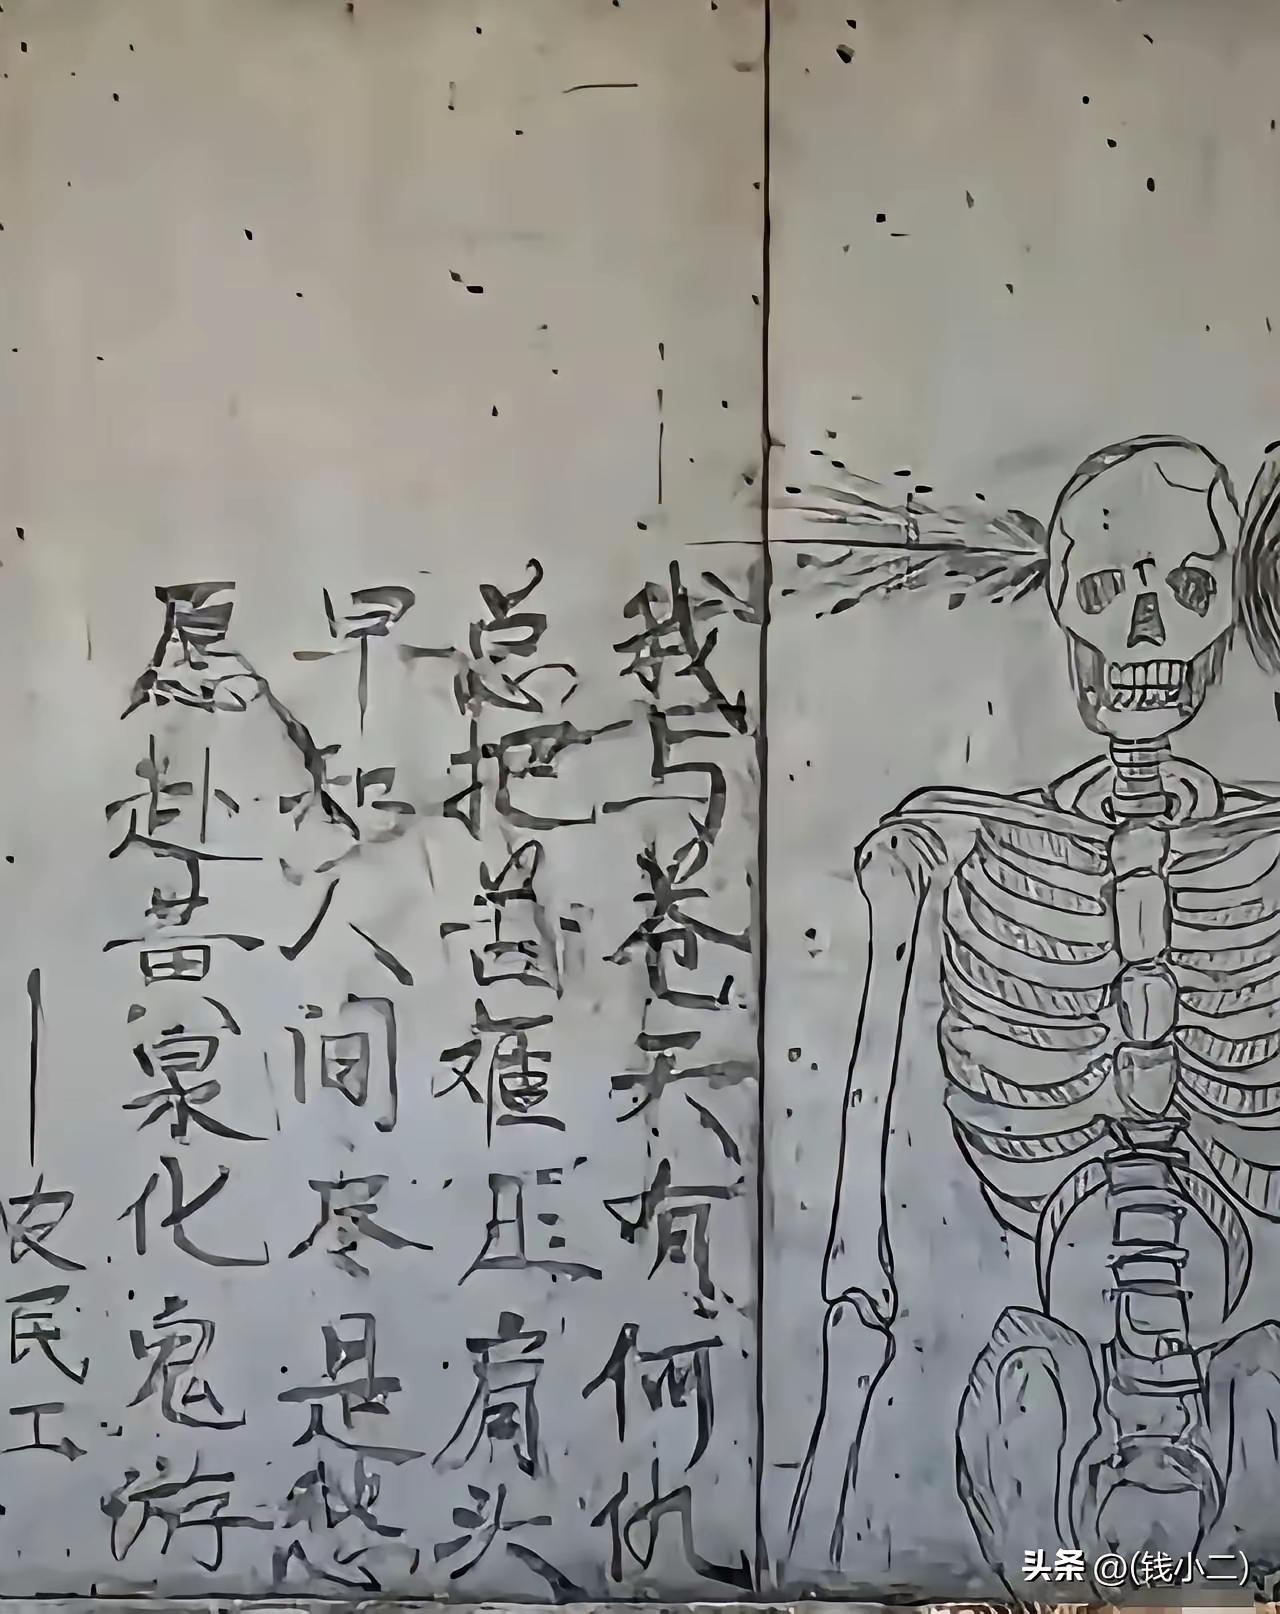 我与苍天有何仇
总把苦难压肩头
早知人间尽是愁
愿赴黄泉化鬼游
——农民工
头条 @(钱小二)